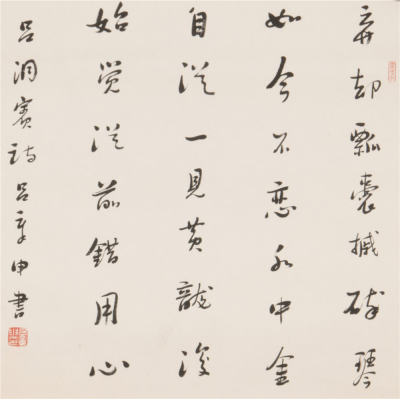 弃却瓢囊摵碎琴
如今不恋水中金
自从一见黄龙后
始觉从前错用心
吕洞宾诗 吕章申书